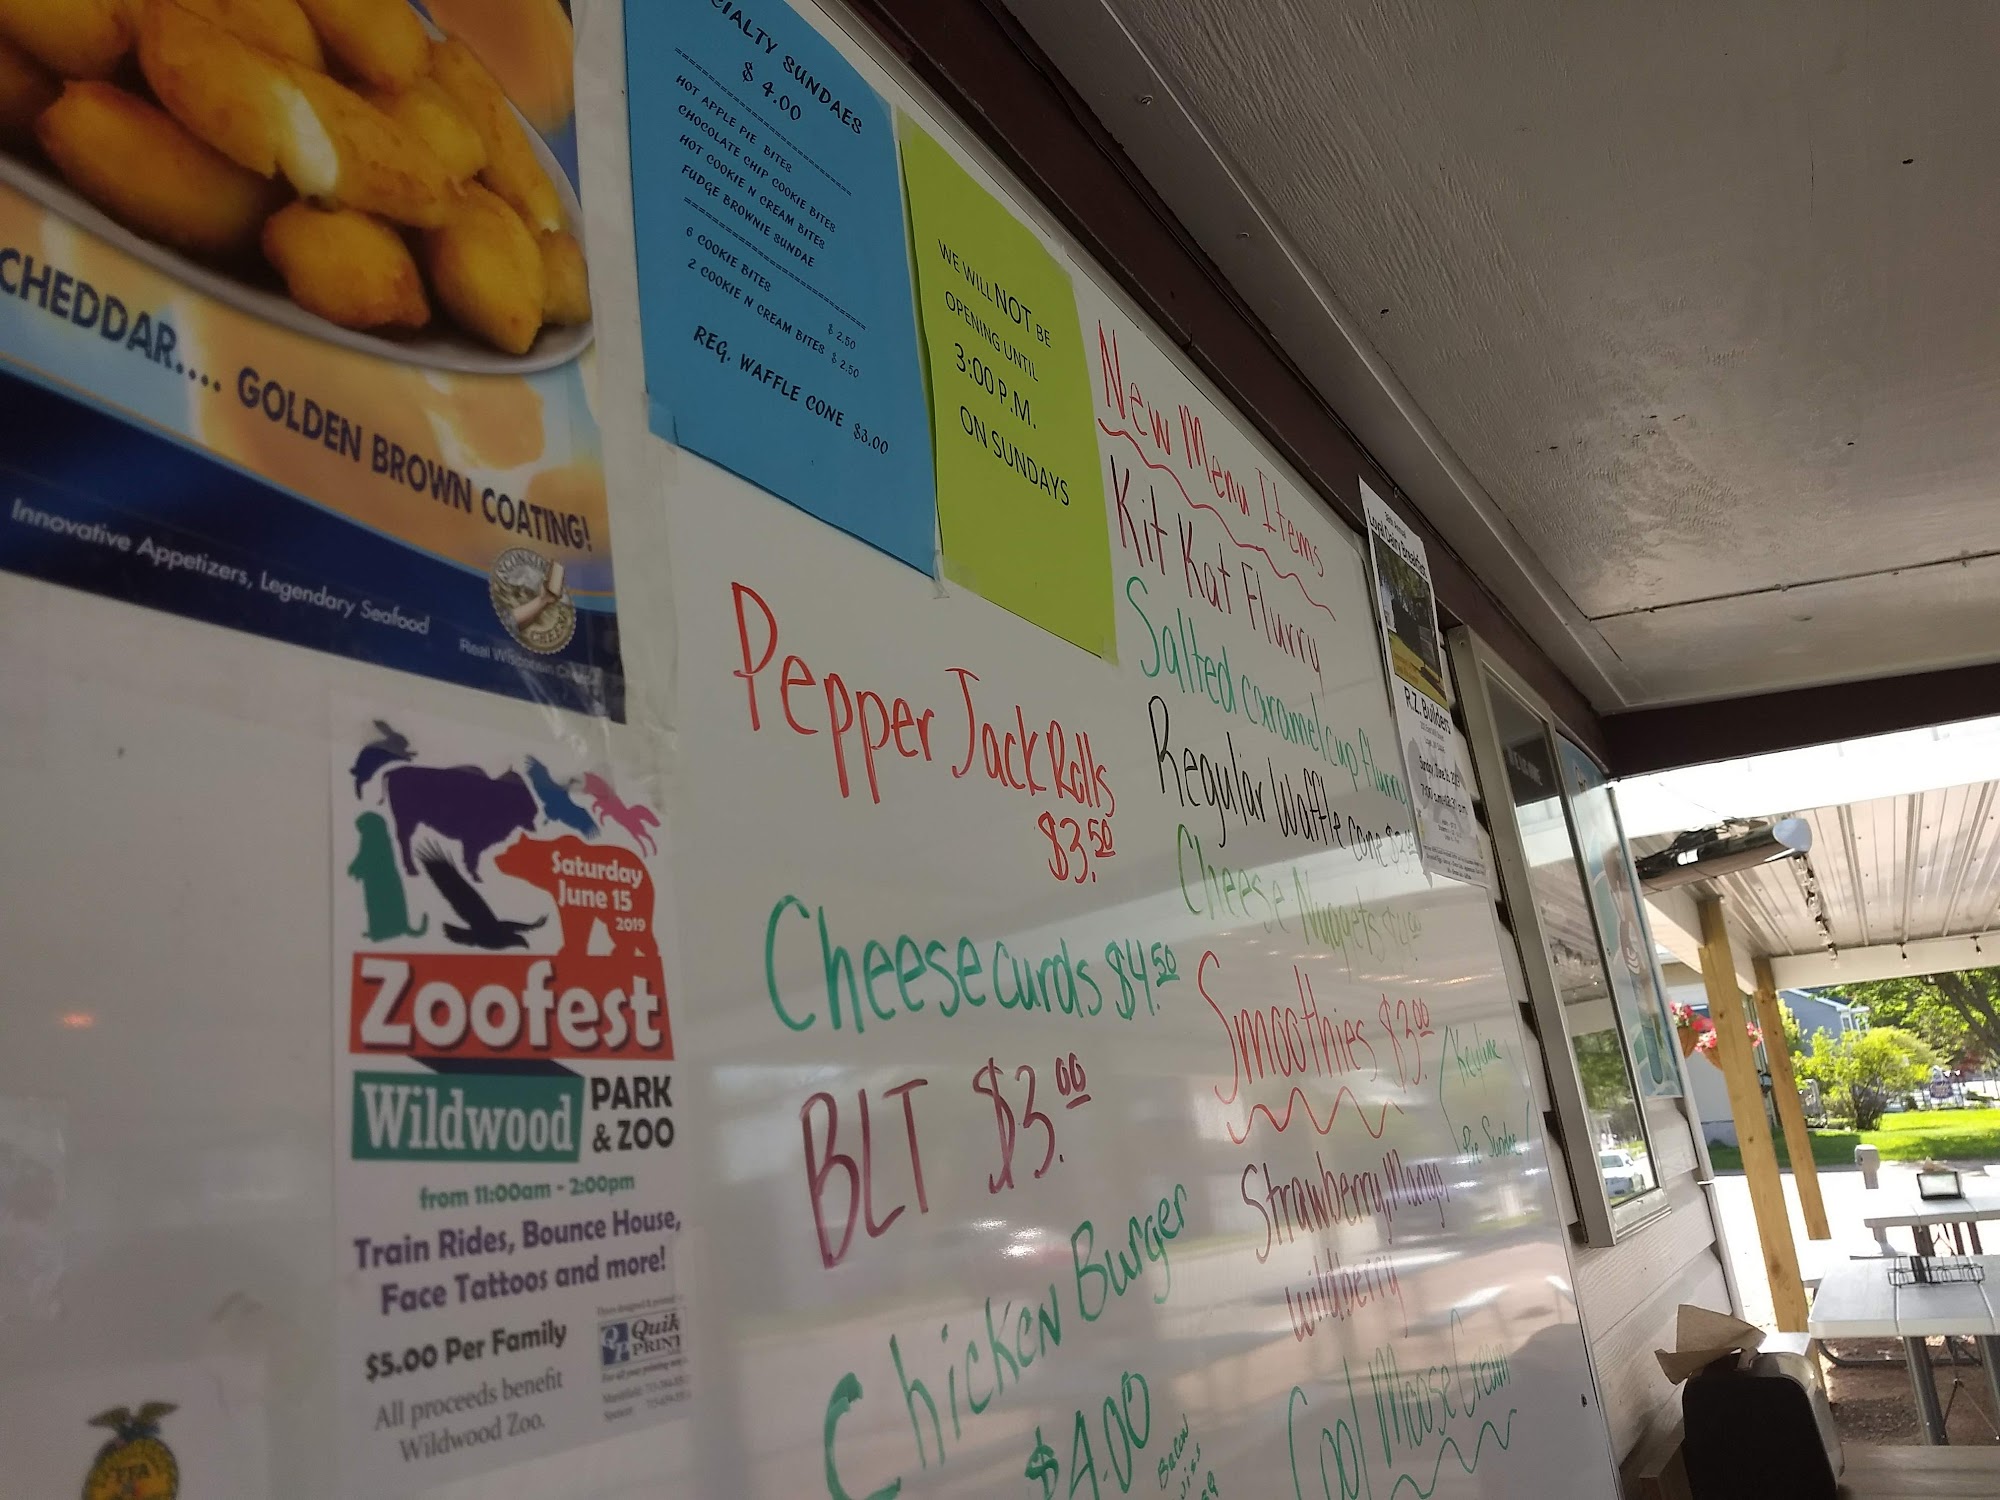 CHEDDAR.... GOLDEN BROWN COATING!
Innovative Appetizers, Legendary Seafood
Real Wisconsin
SUNDAES
$ 4.00
HOT APPLE PIE BITES
CHOCOLATE CHIP COOKIE BITES
HOT COOKIE N CREAM BITES
FUDGE BROWNIE SUNDAE
6 COOKIE BITES $ 2.50
2 COOKIE N CREAM BITES $ 2.50
REG. WAFFLE CONE $3.00
WE WILL NOT BE
OPENING UNTIL
3:00 P.M.
ON SUNDAYS
New Menu Items
Kit Kat Flurry
Salted caramel cup flurry
Regular Waffle cone
Cheese Nuggets
Smoothies $3.00
Strawberry, Mango,
wildberry
Cool Moose Cream
Pie Sundae
Pepper Jack Rolls
$3.50
Cheese curds $4.50
BLT $3.00
Chicken Burger
$4.00
Bacon
Saturday
June 15
2019
Zoofest
Wildwood PARK
& ZOO
from 11:00am - 2:00pm
Train Rides, Bounce House,
Face Tattoos and more!
$5.00 Per Family
All proceeds benefit
Wildwood Zoo.
Quik
PRINT
FFA
Loyal Dairy Breakfast
R.Z. Builders